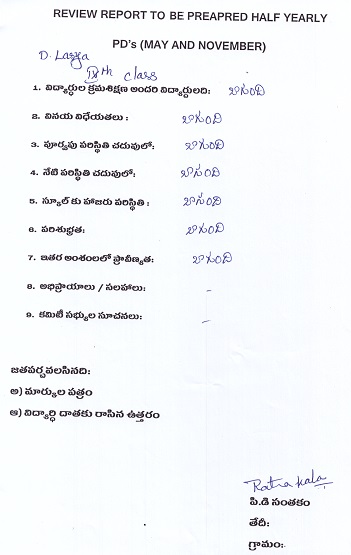 REVIEW REPORT TO BE PREAPRED HALF YEARLY
PD's (MAY AND NOVEMBER)
D. Lazya
IXth class
1. విద్యార్ధుల క్రమశిక్షణ అందరి విద్యార్దులది: బాగుంది
2. వినయ విధేయతలు : బాగుంది
3. పూర్వపు పరిస్థితి చదువులో: బాగుంది
4. నేటి పరిస్థితి చదువులో: బాగుంది
5. స్యూల్ కు హాజరు పరిస్థితి : బాగుంది
6. పరిశుభ్రత: బాగుంది
7. ఇతర అంశంలలో ప్రావీణ్యత: బాగుంది
8. అభిప్రాయాలు / సలహాలు: -
9. కమిటీ సభ్యుల సూచనలు: -
జతపర్చవలసినది:
అ) మార్కుల పత్రం
ఆ) విద్యార్ధి దాతకు రాసిన ఉత్తరం
Ratna kala
పి.డి సంతకం
తేదీ:
గ్రామం: